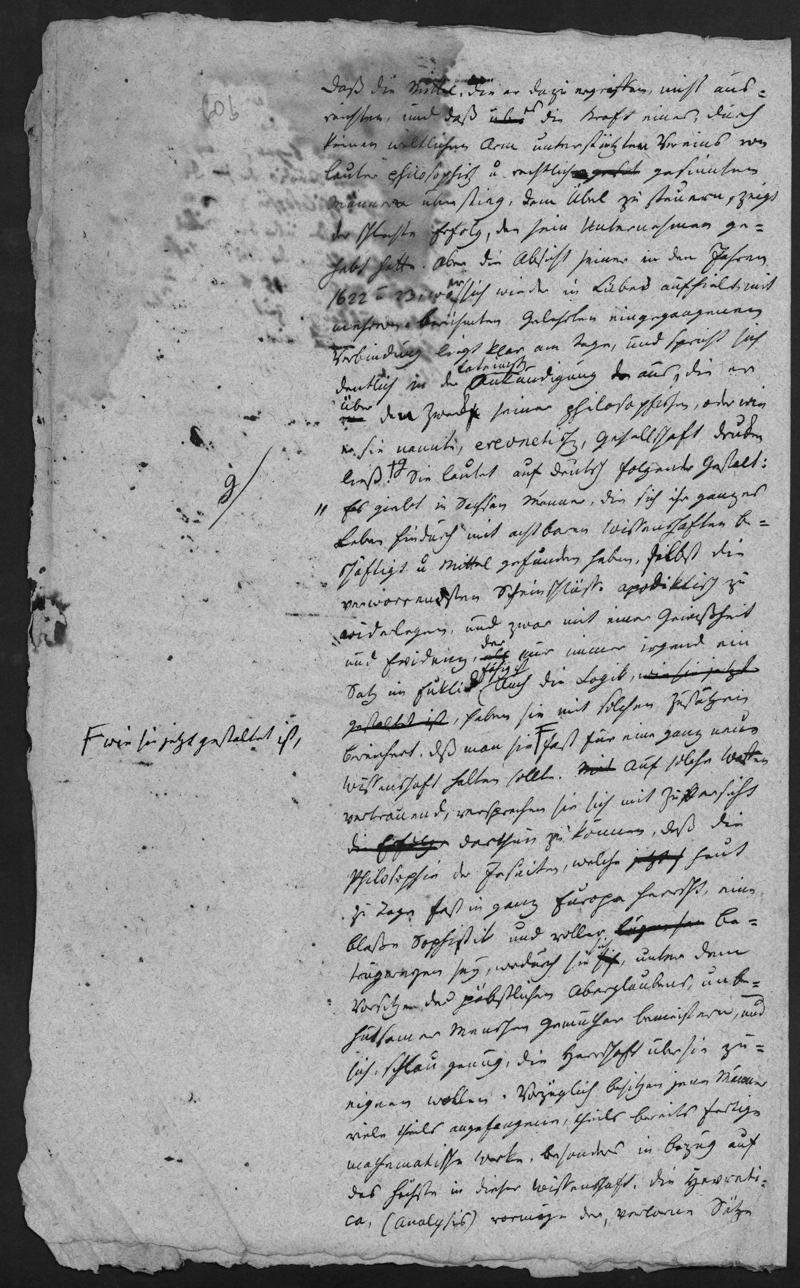 daß die Mittel, die er dazu ergriffen, nicht aus-
reichten, und daß es die Kraft eines, durch
keinen weltlichen Arm unterstützten Vereins von
lauter philosophisch u. rechtlich gesinnten
Männern überstieg, dem Übel zu steuern, zeigt
der schlechte Erfolg, den sein Unternehmen ge-
habt hatte. Aber die Absicht seiner in den Jahren
1622 u 23, wo er sich wieder in Lübeck aufhielt, mit
mehreren berühmten Gelehrten eingegangenen
Verbindung liegt klar am Tage, und spricht sich
deutlich in der lateinischen Ankündigung aus, die er
über den Zweck seiner philosophischen, oder wie
er sie nannte, ereunetisch, Gesellschaft drucken
ließ. Sie lautet auf deutsch folgender Gestalt:
g/
" Es giebt in Sachsen Männer, die sich ihr ganzes
Leben hindurch mit achtbaren Wissenschaften be-
schäftigt u Mittel gefunden haben, selbst die
verworrensten Scheinschlüsse apodiktisch zu
widerlegen, und zwar mit einer Gewißheit
und Evidenz, der nur immer irgend ein
Satz im Euklid fähig ist. Auch die Logik, wie sie jetzt
gestaltet ist, haben sie mit solchen Zusätzen
bereichert, daß man sie F fast für eine ganz neue
F wie sie jetzt gestaltet ist,
Wissenschaft halten sollte. Mit Auf solche Waffen
vertrauend, versprechen sie sich mit Zuversicht
die Erfolge darthun zu können, daß die
Philosophie der Jesuiten, welche jetzt heut
zu Tage fast in ganz Europa herrscht, eine
bloße Sophistik und voller be-
trügereyen sey, wodurch sie sich, unter dem
Vorsitze des päbstlichen Aberglaubens, unbe-
hutsamer Menschen Gemüther bemeistern, und
sich, schlau genug, die Herrschaft über sie zu-
eignen wollen. Vorzüglich besitzen jene Männer
viele theils angefangene, theils bereits fertige
mathematische Werke, besonders in bezug auf
das Höchste in dieser Wissenschaft, die Hevreti-
ca, (Analysis) vermöge der, verlorne Sätze